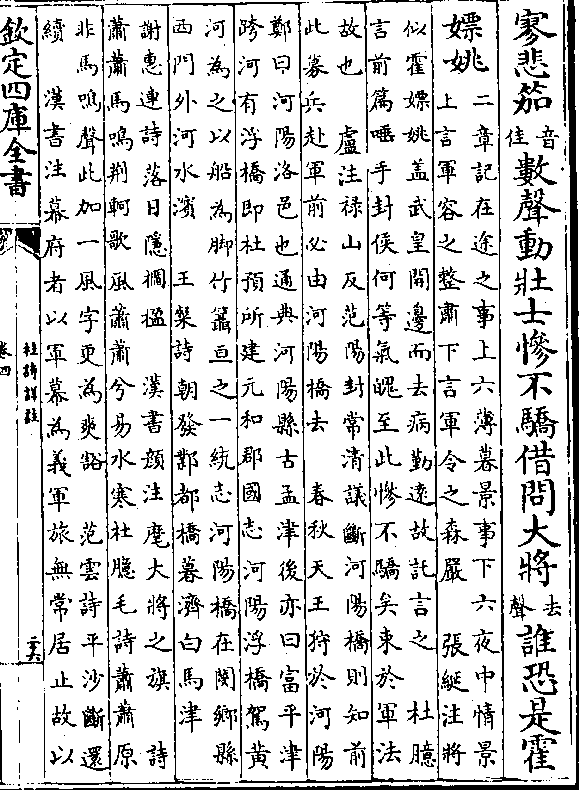 寥悲笳音佳數聲動壯士慘不驕借問大將去聲誰恐是霍
嫖姚二章記在途之事上六薄暮景事下六夜中情景
上言軍容之整肅下言軍令之森嚴　張綖注將
似霍嫖姚蓋武皇開邊而去病勤遠故託言之　杜臆
言前篇唾手封侯何等氣魄至此慘不驕矣束於軍法
故也　盧注祿山反范陽封常清議斷河陽橋則知前
此募兵赴軍前必由河陽橋去　春秋天王狩於河陽
鄭曰河陽洛邑也通典河陽縣古孟津後亦曰富平津
跨河有浮橋即杜預所建元和郡國志河陽浮橋駕黃
河為之以船為脚竹䉶亘之一統志河陽橋在閿鄉縣
西門外河水濱　王粲詩朝發鄴都橋暮濟白馬津
謝惠連詩落日隱櫩楹　漢書顔注麾大將之旗　詩
蕭蕭馬鳴荆軻歌風蕭蕭兮易水寒杜臆毛詩蕭蕭原
非馬鳴聲此加一風字更為爽豁　范雲詩平沙斷還
續　漢書注幕府者以軍幕為義軍旅無常居止故以
欽定四庫全書
杜詩詳註
卷四
二六